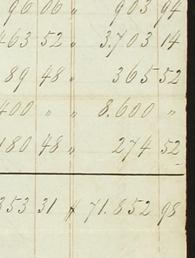 96 06 " 903 94
463 52 " 3.703 14
89 48 " 365 52
400 " " 8.600 "
180 48 " 274 52
353 31 # 71.852 98